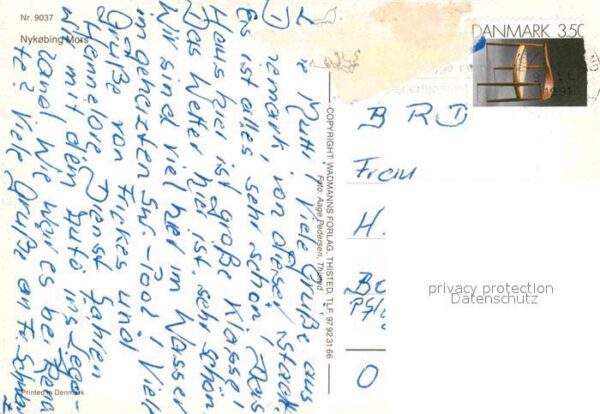 Nr. 9037
Nykøbing Mors
Mutti! Viele Grüße aus
dieser Stadt,
Es ist alles sehr schön! Das
Haus hier ist große Klasse!
Das Wetter hier ist sehr schön.
Wir sind viel hier im Wasser
im geheizten Swi-Pool! Viele
Grüße von Frickes und
Hannelore. Dienst. fahren
wir mit dem Auto ins Lego-
land. Wie war es bei Rena
te? Viele Grüße an Fr. Schmu
Printed in Denmark
COPYRIGHT: WADMANNS FORLAG, THISTED, TLF. 97923166
Foto: Aage Pedersen, Thisted
DANMARK 3,50
1991
BRD
Frau
H.
O
privacy protection
Datenschutz